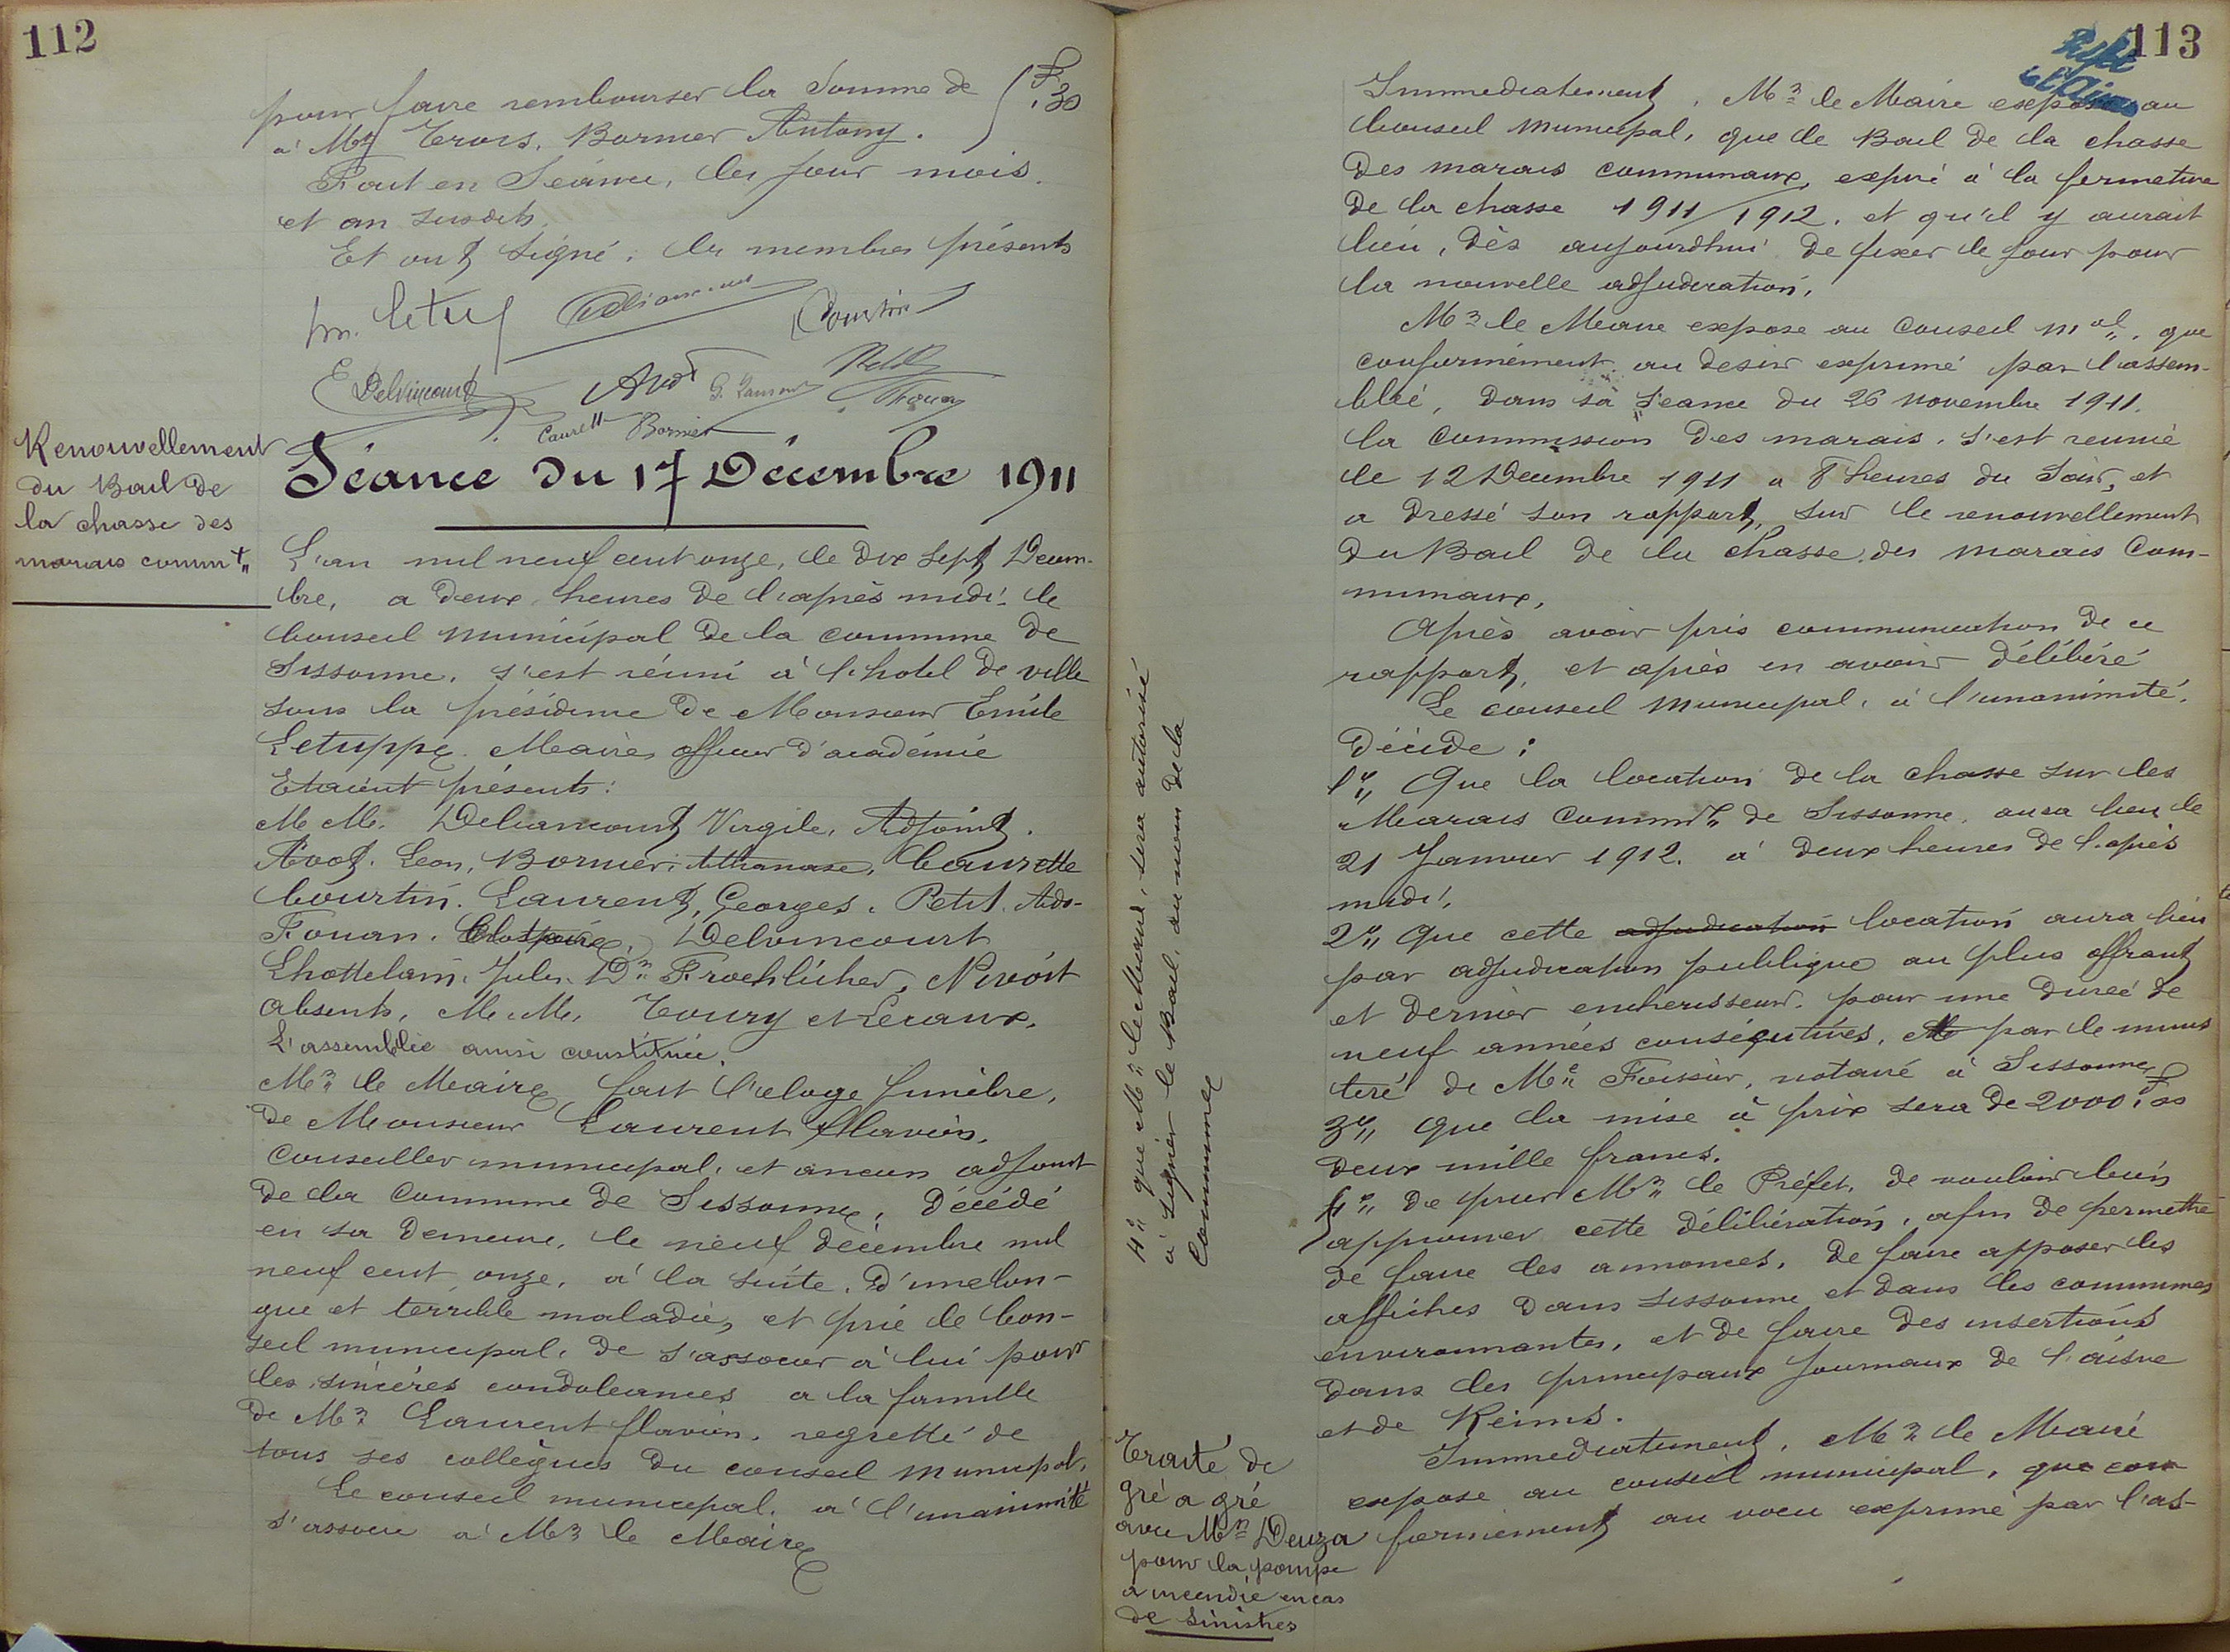 112
pour faire rembourser la Somme de
à Mrs Trois, Bornier Antony.
Fait en Séance, les jour mois
et an susdits
Et ont signé, les membres présents
Courtin
E Delvincourt
G. Laurent
Caurette Bornier
Renouvellement
du Bail de
la chasse des
marais commx
Séance du 17 Décembre 1911
L'an mil neuf cent onze, le dix sept Décem-
bre, a deux heures de l'après midi, le
Conseil Municipal de la commune de
Sissonne, s'est réuni à l'hotel de ville
sous la présidence de Monsieur Emile
Letuppe, Maire, officier d'académie
Etaient présents:
M M. Deliancourt Virgile, Adjoint.
Avot Leon, Bornier Athanase, Caurette
Courtin, Laurent, Georges, Petit Ado-
Fouan, Delvincourt
Lhottelain, Jules, Dr Froehlicher, Nivoit
Absents, M.M. Toury et Leraux.
L'assemblée ainsi constituée.
Mr le Maire fait l'eloge funèbre,
de Monsieur Laurent Flavien,
Conseiller municipal, et ancien adjoint
de la Commune de Sissonne, décédé
en sa demeure, le neuf décembre mil
neuf cent onze, à la suite, d'une lon-
gue et terrible maladie, et prie le Con-
seil municipal, de s'associer à lui pour
les sincères condoleances a la famille
de Mr Laurent flavien, regretté de
tous ses collègues du conseil municipal.
Le conseil municipal, a l'unanimité
s'associe a Mr le Maire
113
Immediatement, Mr le Maire expose au
Conseil Municipal, que le Bail de la chasse
des marais communaux, expire à la fermeture
de la chasse 1911/1912, et qu'il y aurait
lieu, dès aujourdhui de fixer le jour pour
la nouvelle adjudication,
Mr le Maire expose au Conseil mal, que
conformément au desir exprimé par l'assem-
blée, dans sa seance du 26 novembre 1911.
la Commission des marais, s'est reunie
le 12 Decembre 1911 a 8 heures du Soir, et
a dressé son rapport, sur le renouvellement
du Bail de la Chasse des marais Com-
munaux,
Après avoir pris communication de ce
rapport, et après en avoir délibéré
Le conseil Municipal, à l'unanimité,
Décide :
1° Que la location de la chasse sur les
Marais Commx de Sissonne, aura lieu le
21 Janvier 1912, à deux heures de l'après
midi,
2° Que cette adjudication location aura lieu
par adjudication publique au plus offrant
et dernier encherisseur, pour une durée de
neuf années conséqutives, par le minis
tere de Me Foissier, notaire à Sissonne
3° Que la mise à prix sera de 2000f,00
deux mille francs.
4° De prier Mr le Préfet, de vouloir bien
approuver cette délibération, afin de permettre
de faire les annonces, de faire apposer les
affiches dans Sissonne et dans les communes
environnantes, et de faire des insertions
dans les principaux Journaux de l'aisne
et de Reims.
4° que Mr le Maire, sera autorisé
à signer le Bail, au nom de la
Commune
Immediatement, Mr le Maire
expose au conseil municipal, que con
formement au voeu exprimé par l'as-
Traité de
gré a gré
avec Mr Deuza
pour la pompe
a incendie en cas
de Sinistres